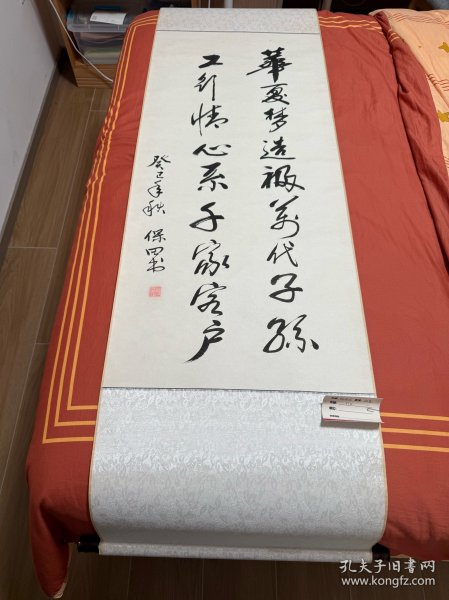 華夏梦造福万代子孫
工行情心系千家客户
癸巳年秋 保田书
孔夫子旧书网
www.kongfz.com